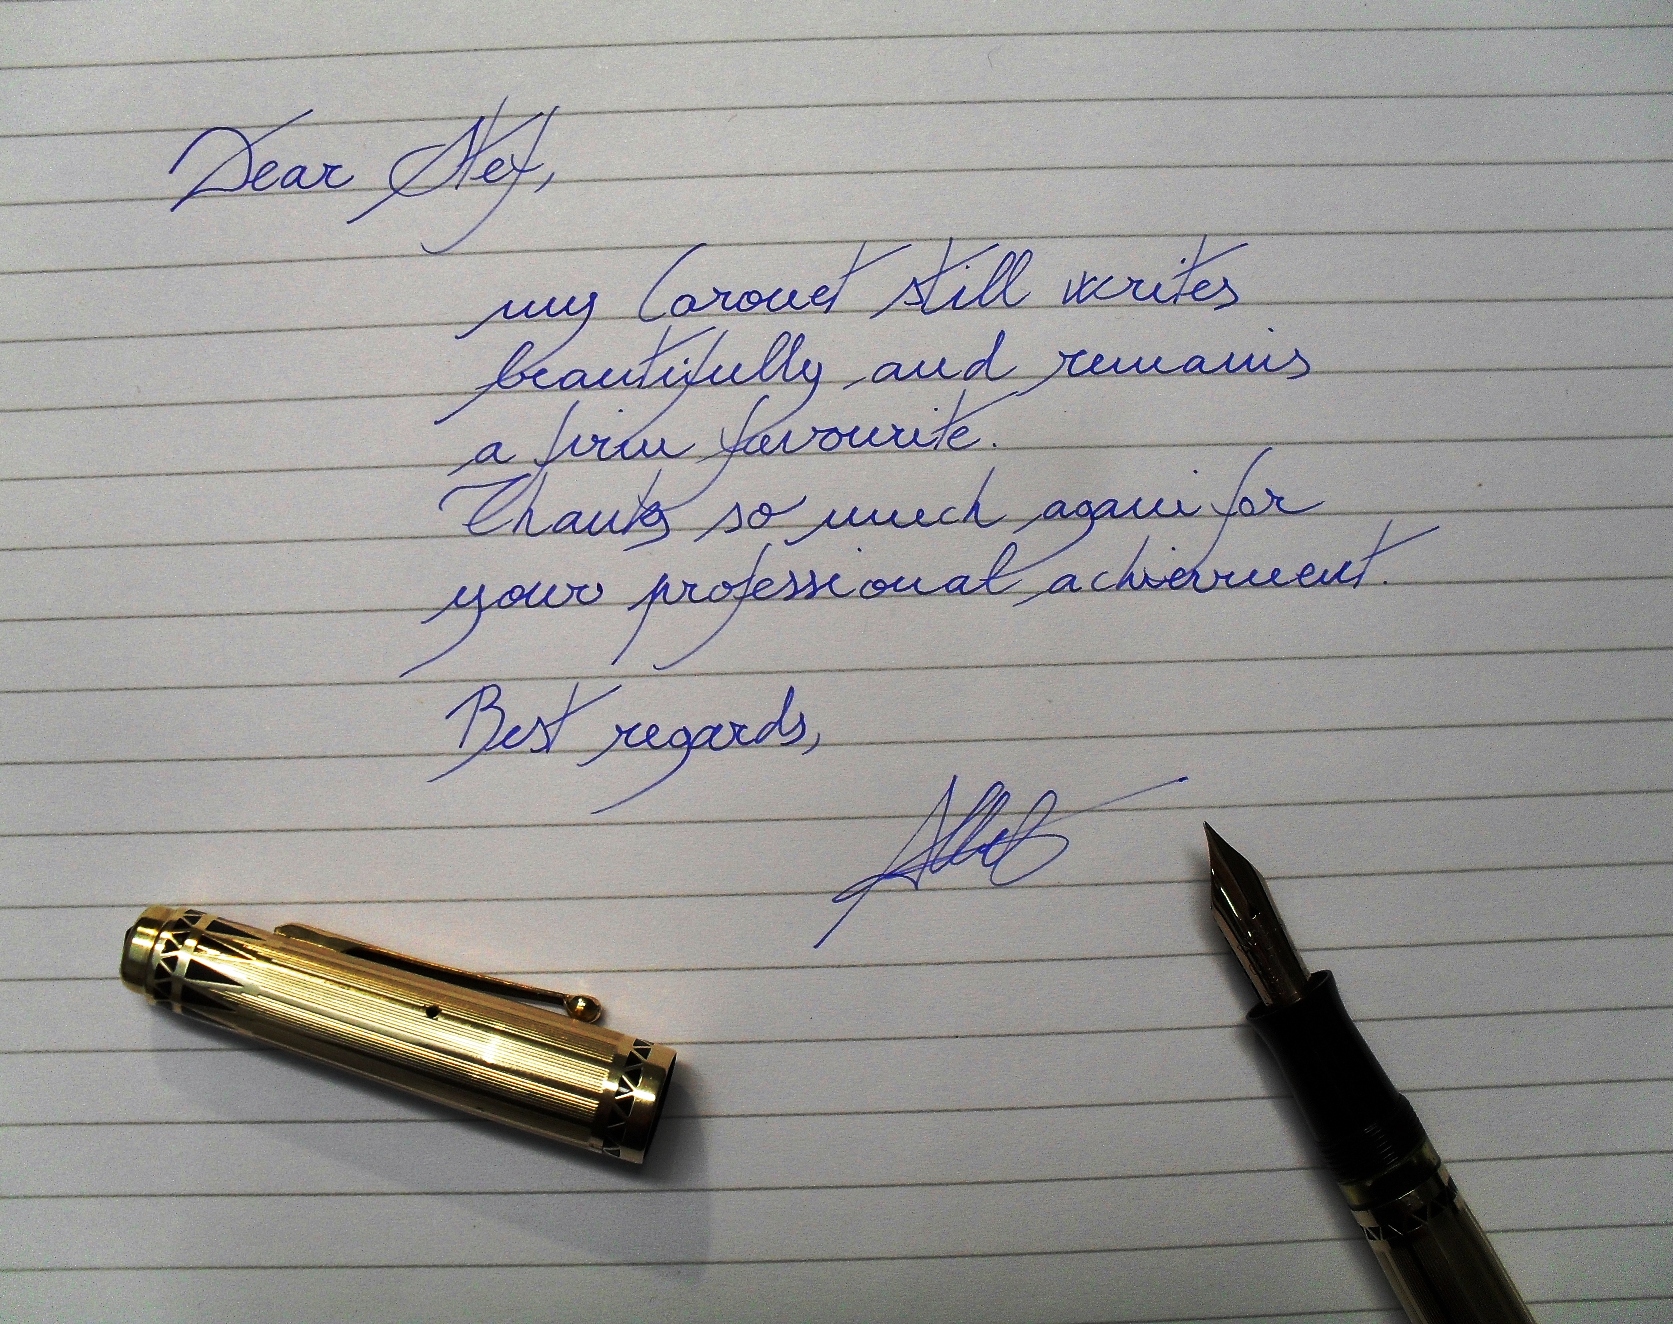 Dear Stef,
my Carouet still writes
beautifully and remains
a firm favourite.
Thanks so much again for
your professional achievement.
Best regards,